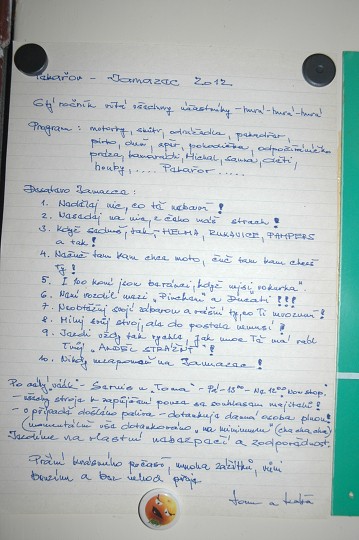 Pekařov - Jamazac 2012
6tý ročník vítá všechny účastníky - hurá - hurá - hurá
Program: motorky, skútr, odrážedla,
pivko, pohodička, odpočíváníčko
práza, kamarádi, Michal, sauna, děti,
houby, .... Pekařov .....
Desatero Jamazaca:
1. Nadělej nic, co tě nebaví!
2. Nesedej na nic, z čeho máš strach!
3. Když sedneš, tak - HELMA, RUKAVICE, PAMPERS
a tak!
4. Nežeň tam kam chce moto, leč tam kam chceš
Ty!
5. I 100 koní jsou beránci, když nejsi "rohatka"
6. Není rozdíl mezi "Pinchem a Ducati" !!!
7. Neobtěžuj svojí zábavou a
8. Miluj svůj stroj, ale do postele nemusí!
9. Jezdi vždy tak rychle, jak moc Tě má rád
Tvůj "ANDĚL STRÁŽNÝ"!
10. Nikdy nezapomeň na Jamazaca!
Po celý "víkend" - Servis u Toma - Pá - 15⁰⁰ - Ne 12⁰⁰ Non stop.
- všechny stroje k zapůjčení pouze se souhlasem majitelů!
- v případě došlého paliva - dotankuje daná osoba plnou!
(momentálně vše dotankováno "na minimum" (cha cha cha)
Jezdíme na vlastní nebezpečí a zodpovědnost.
Přání krásného počasí, mnoha zážitků,
benzínu a bez nehod přeje
Tom a